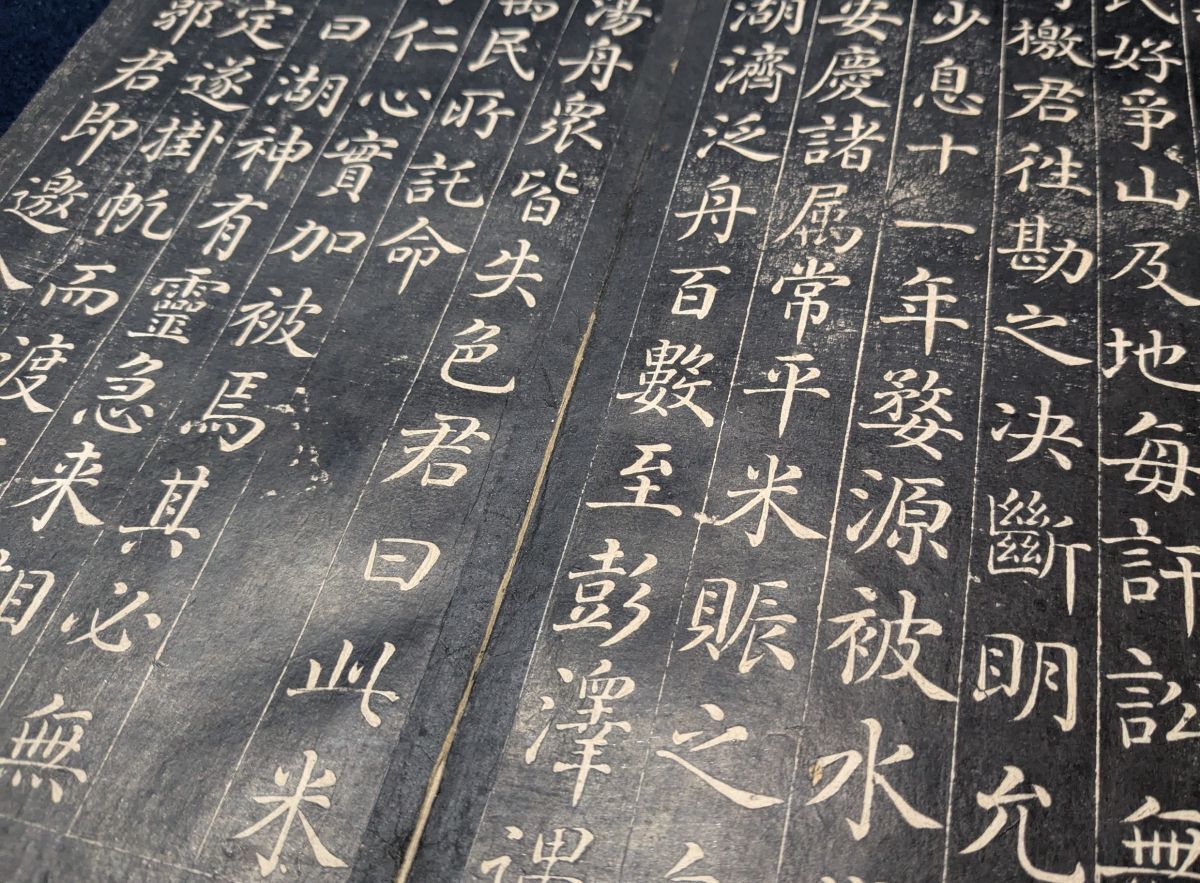 民好爭山及地每訐訟無
檄君徃勘之决斷明允
少息十一年婺源被水
安慶諸属常平米賑之
湖濟泛舟百數至彭澤遇
湯舟衆皆失色君曰此米
爲民所託命
仁心實加被焉其必無
曰湖神有靈急来相
定遂掛帆而渡
君即邀